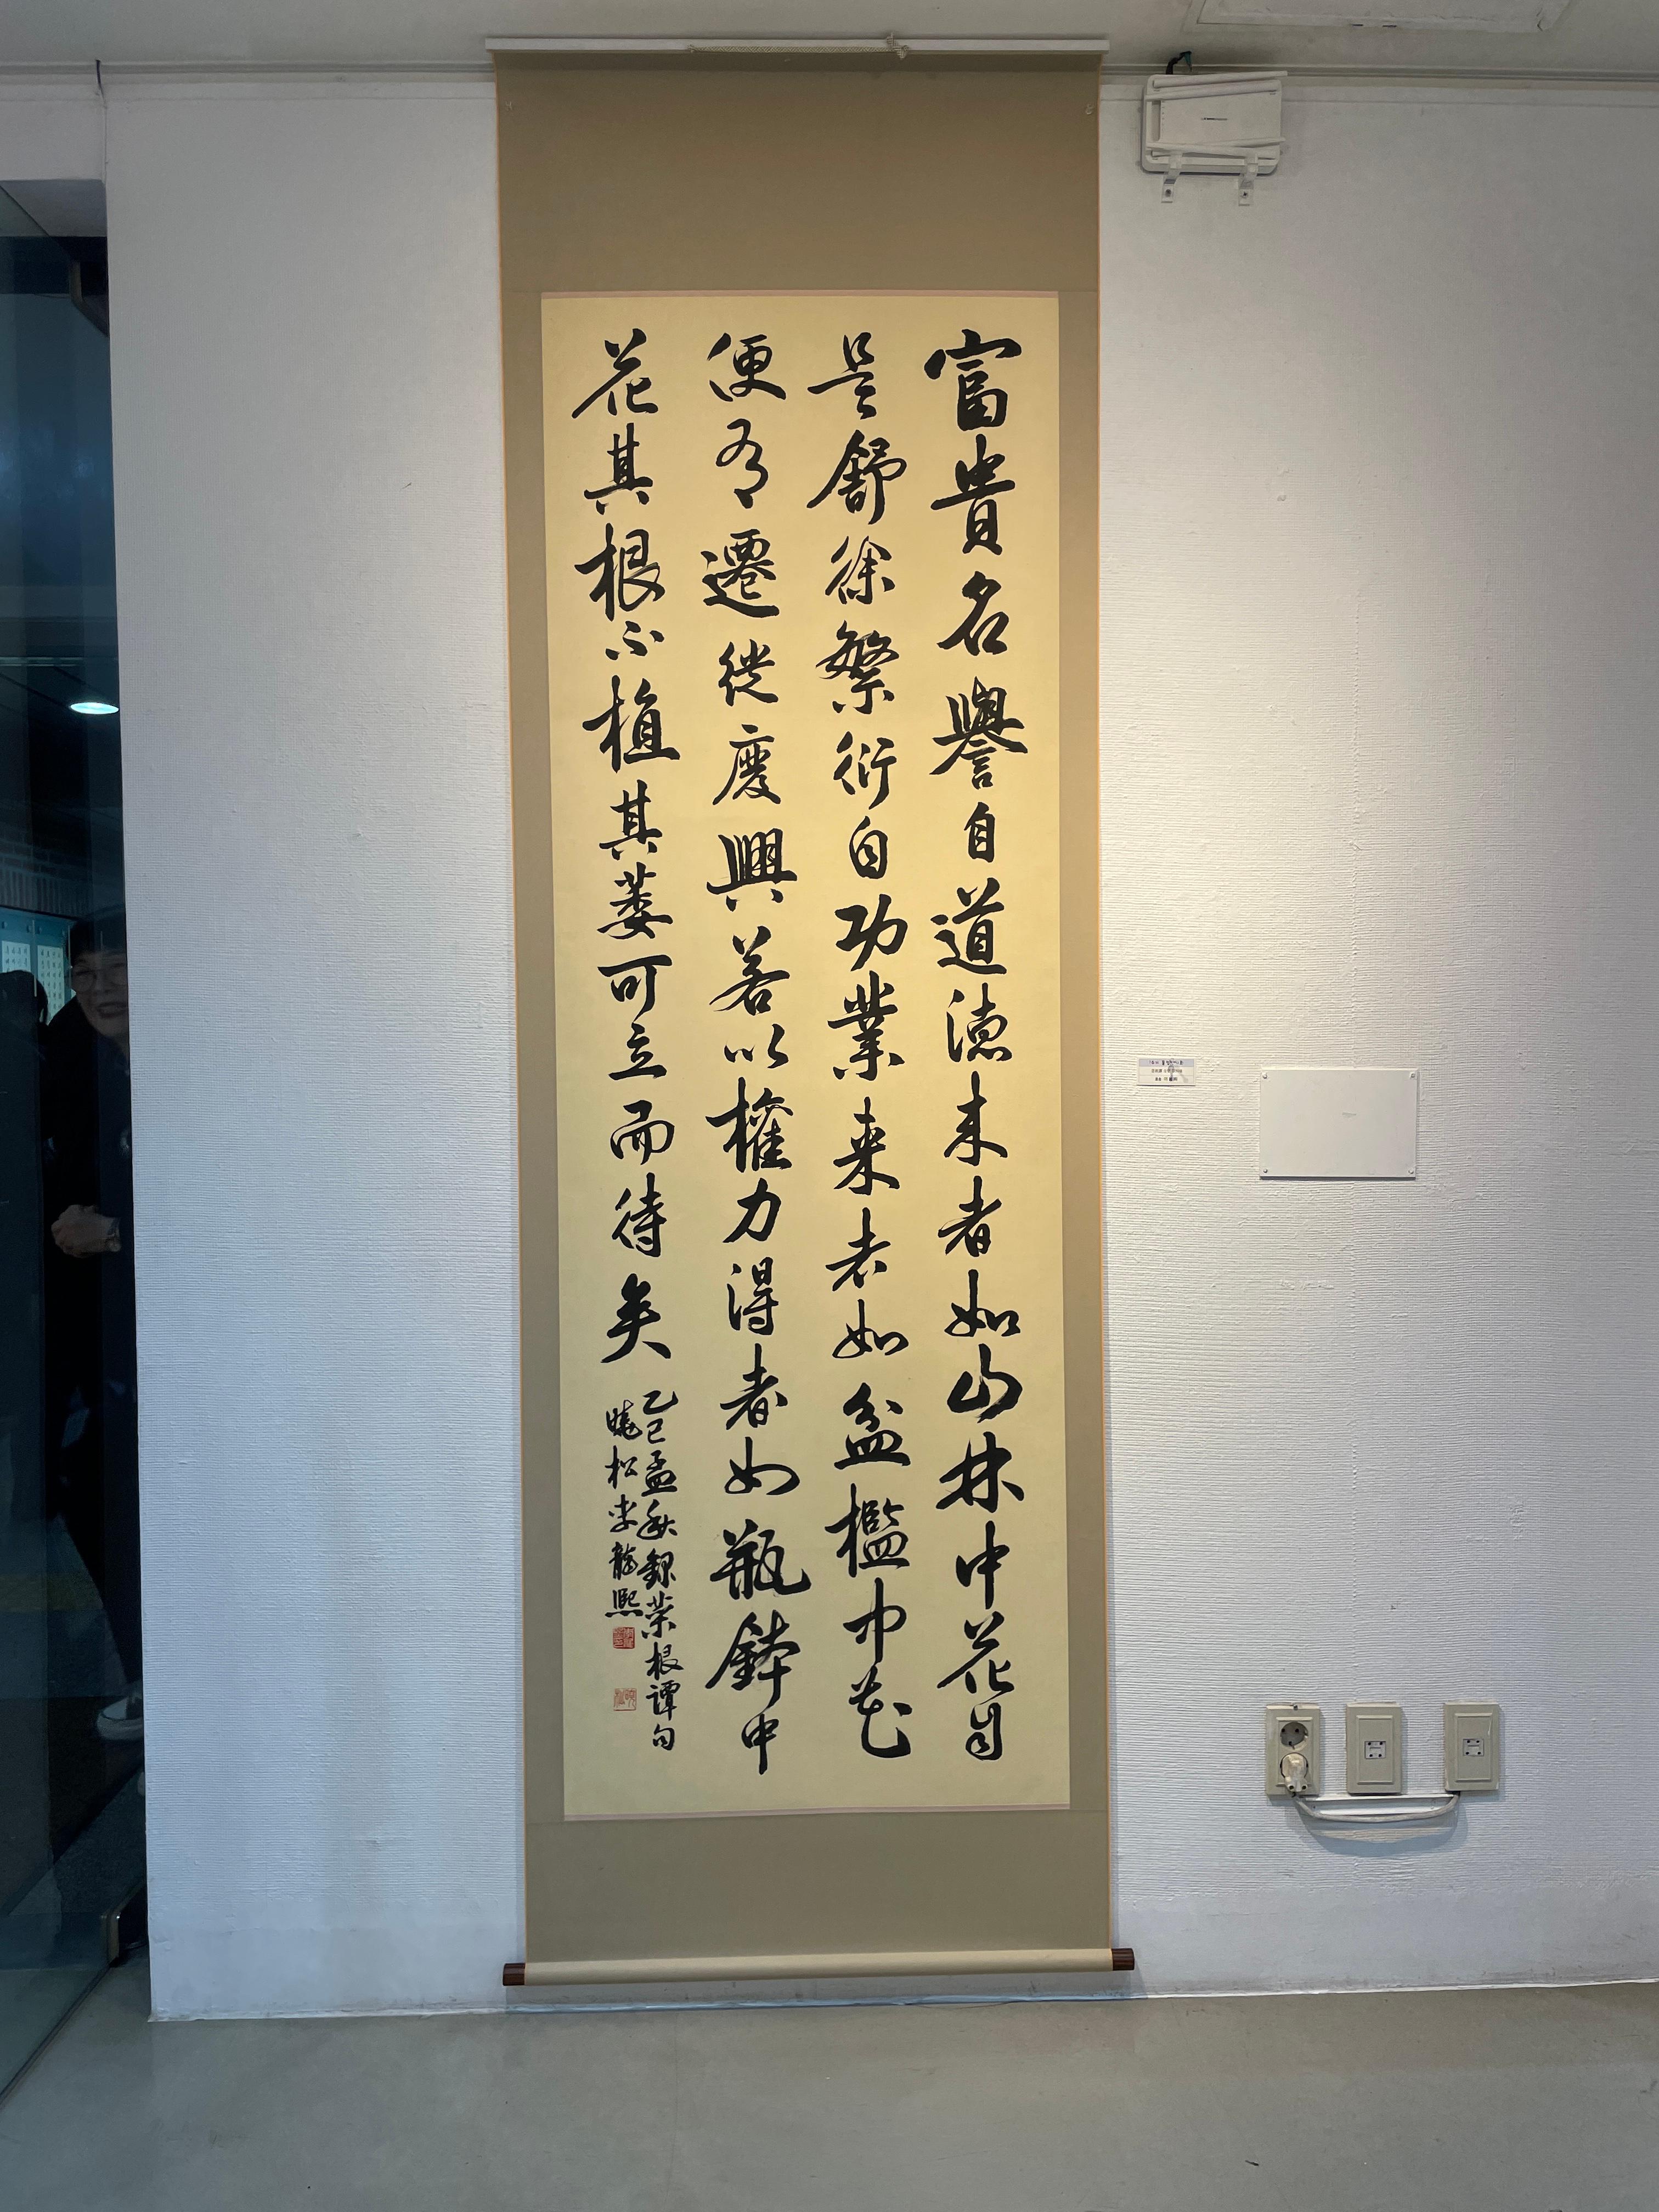 富貴名譽自道德来者如山林中花自
是舒徐繁衍自功業来者如盆檻中花
便有遷徙廢興若以權力得者如瓶鉢中
花其根不植其萎可立而待矣
乙巳孟秋錄菜根譚句
曉松李龍熙